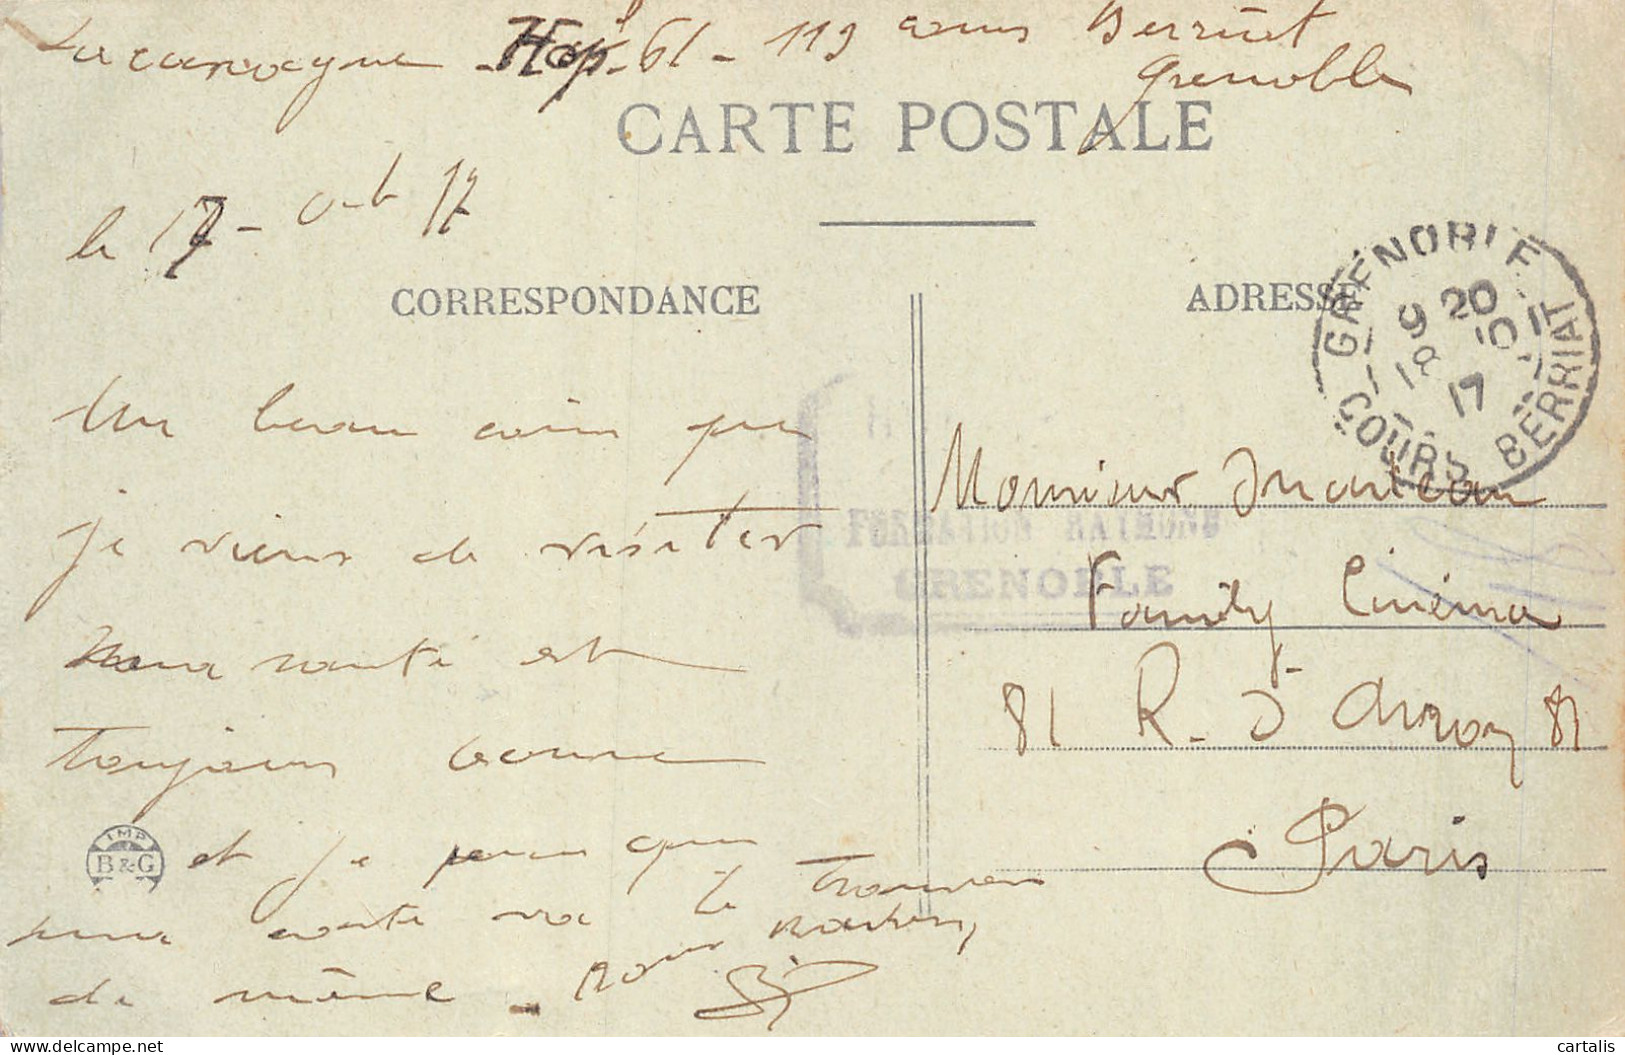 Hopl 61 - 119 cours Berriat
Grenoble
CARTE POSTALE
le 17 - oct 17
CORRESPONDANCE
ADRESSE
GRENOBLE
9 20
18 10
17
COURS BERRIAT
Un beau coin que
je viens de visiter
ma santé est
toujours bonne
et je pense que
votre va se trouver
de même - 
FORMATION
GRENOBLE
Monsieur
Family Cinéma
81 R. d'Avron 81
Paris
IMP
B&G
cartalis